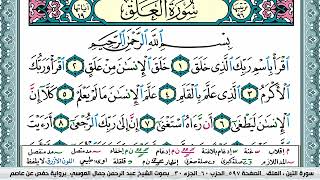 سُورَةُ العَلَق
بِسْمِ ٱللَّهِ ٱلرَّحْمَٰنِ ٱلرَّحِيمِ
ٱقْرَأْ بِٱسْمِ رَبِّكَ ٱلَّذِى خَلَقَ ١ خَلَقَ ٱلْإِنسَٰنَ مِنْ عَلَقٍ ٢ ٱقْرَأْ وَرَبُّكَ
ٱلْأَكْرَمُ ٣ ٱلَّذِى عَلَّمَ بِٱلْقَلَمِ ٤ عَلَّمَ ٱلْإِنسَٰنَ مَا لَمْ يَعْلَمْ ٥ كَلَّآ إِنَّ
ٱلْإِنسَٰنَ لَيَطْغَىٰٓ ٦ أَن رَّءَاهُ ٱسْتَغْنَىٰٓ ٧ إِنَّ إِلَىٰ رَبِّكَ ٱلرُّجْعَىٰٓ ٨
سورة التين ، العلق الصفحة ٥٩٧ الحزب ٦٠ الجزء ٣٠ بصوت الشيخ عبد الرحمن جمال العوسي برواية حفص عن عاصم